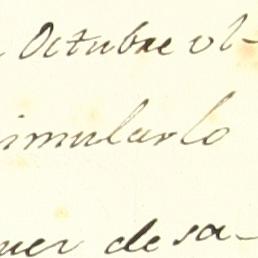 Octubre ul-
imularlo
uer de sa-